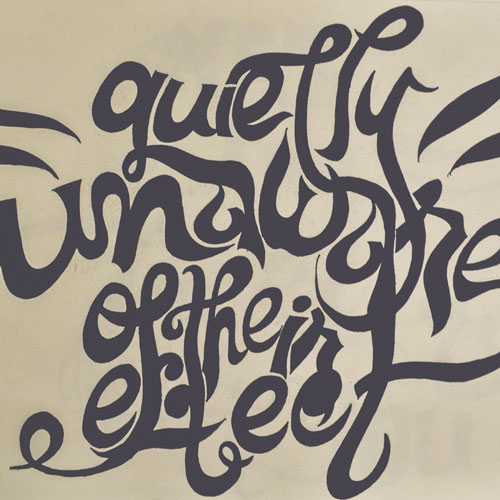 quietly
unaware
of their
effect